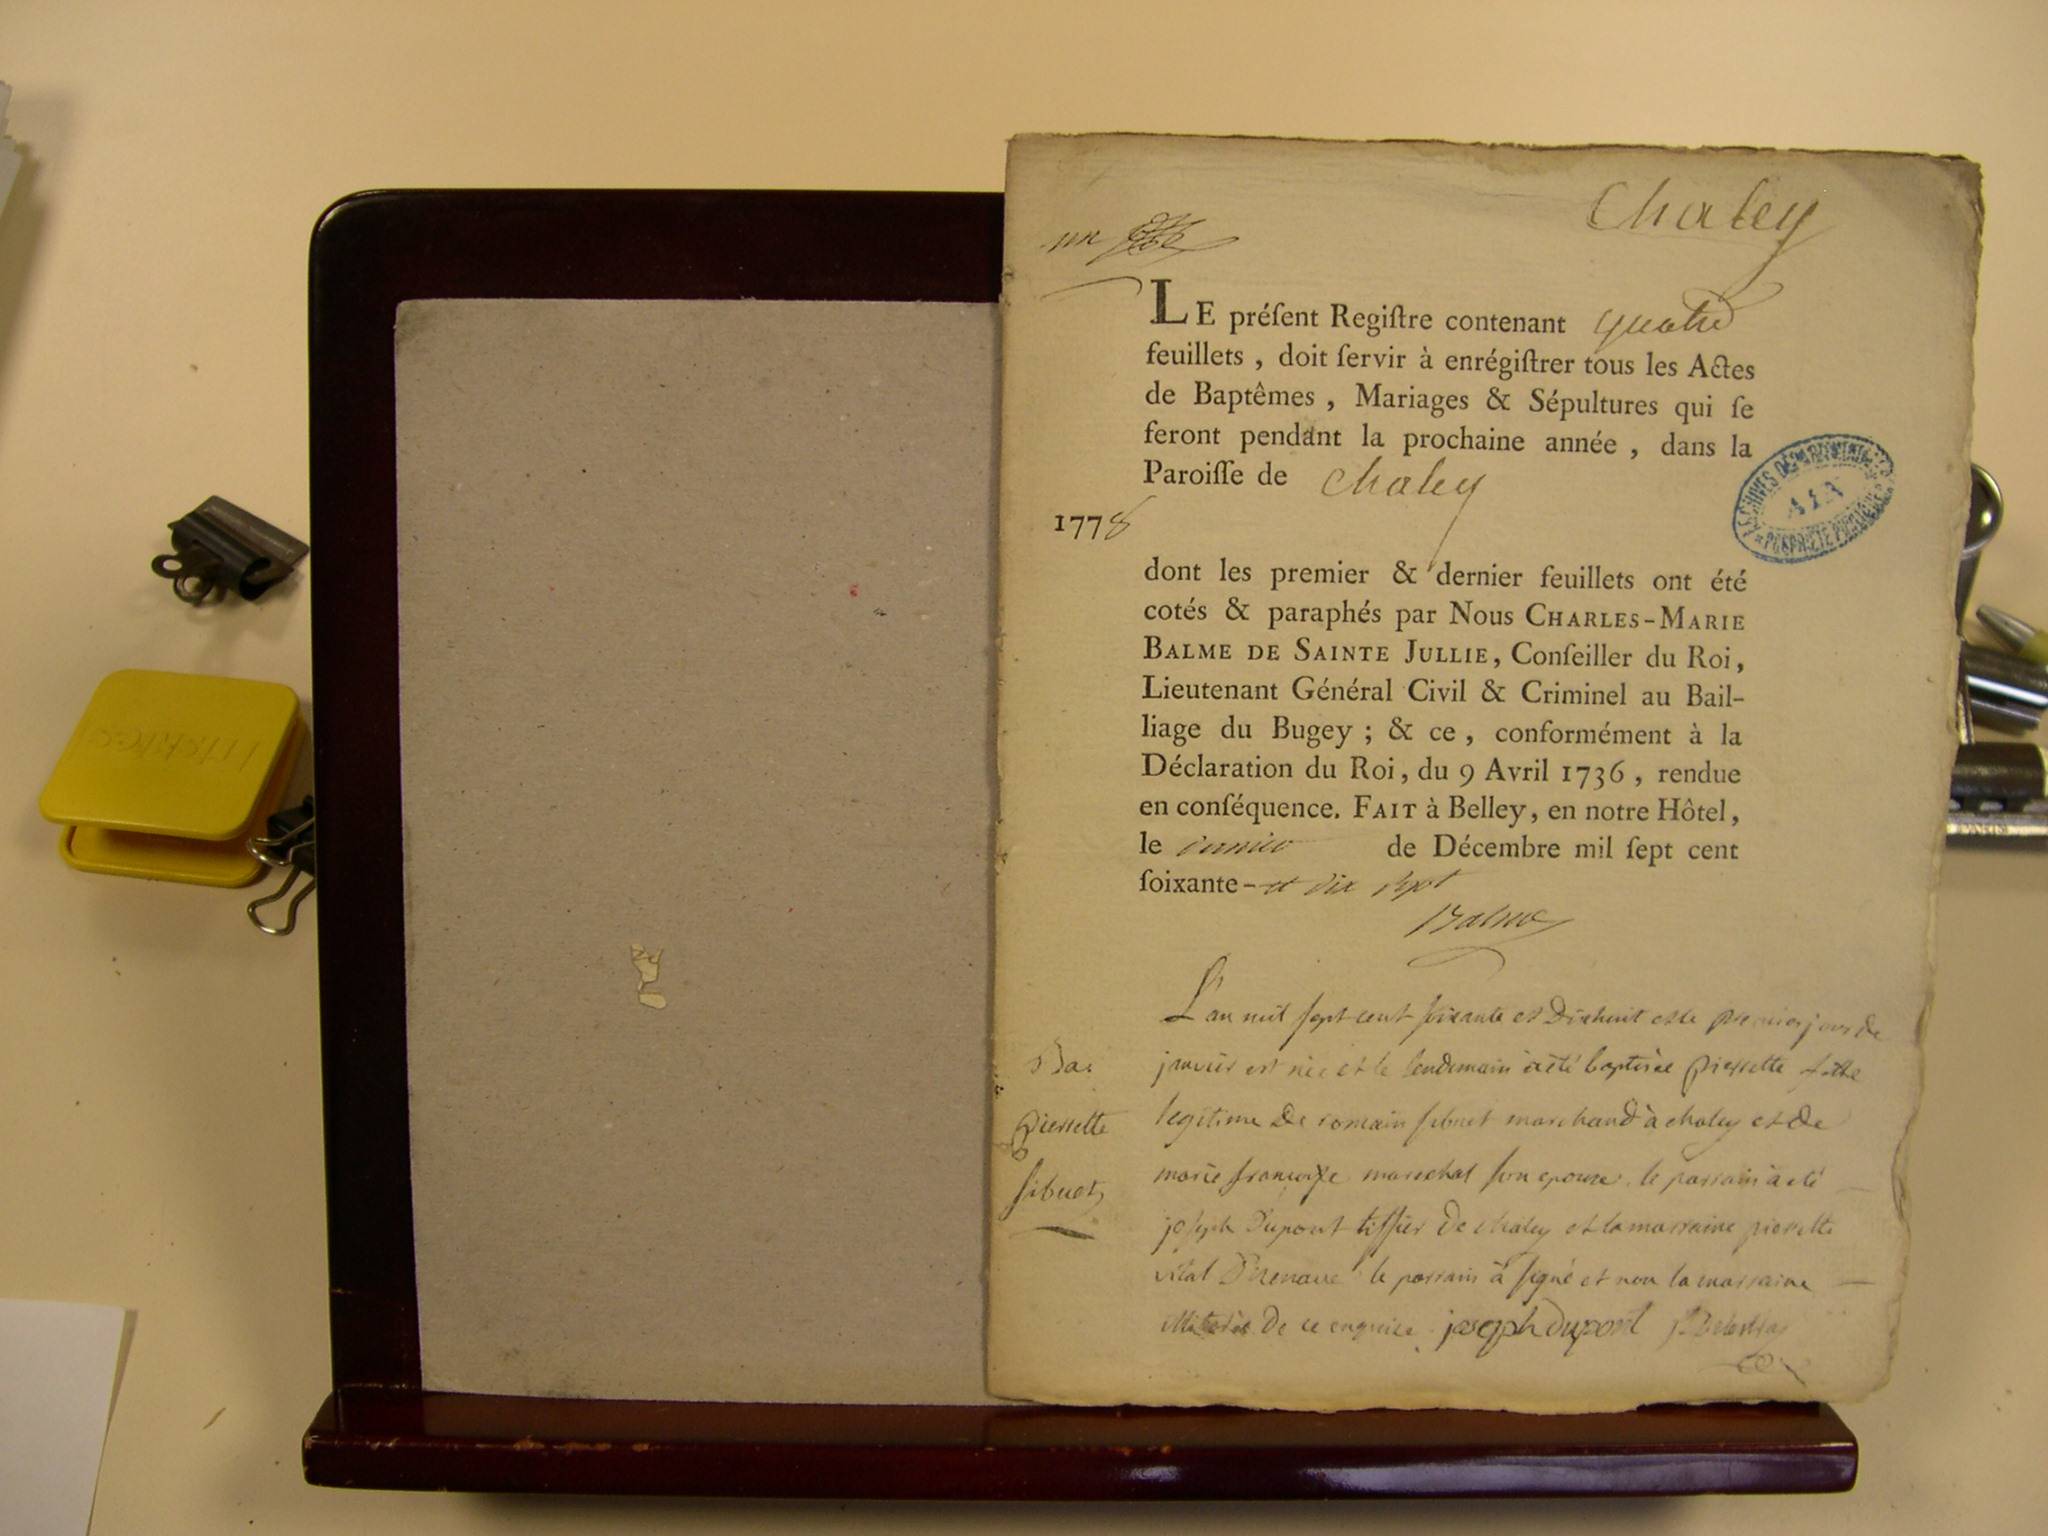 Chaley
un
LE préſent Regiſtre contenant quatre
feuillets, doit ſervir à enrégiſtrer tous les Actes
de Baptêmes, Mariages & Sépultures qui ſe
feront pendant la prochaine année, dans la
Paroiſſe de chaley
1778
ARCHIVES DÉPARTEMENTALES
AIN
PROPRIÉTÉ PUBLIQUE
dont les premier & dernier feuillets ont été
cotés & paraphés par Nous CHARLES-MARIE
BALME DE SAINTE JULLIE, Conſeiller du Roi,
Lieutenant Général Civil & Criminel au Bail-
liage du Bugey; & ce, conformément à la
Déclaration du Roi, du 9 Avril 1736, rendue
en conſéquence. FAIT à Belley, en notre Hôtel,
le de Décembre mil ſept cent
ſoixante-et dix sept
Balme
L'an mil sept cent soixante et Dixhuit et le premier jour de
janvier est née et le lendemain a été baptisée pierrette fille
legitime De romain sibuet marchand à chaley et de
marie françoise marechal son epouse. le parrain à été
joseph Dupont tissier De chaley et la marraine pierrette
vital le parrain à signé et non la marraine
illiterée De ce enquise. joseph dupont
Ba.
pierrette
sibuet